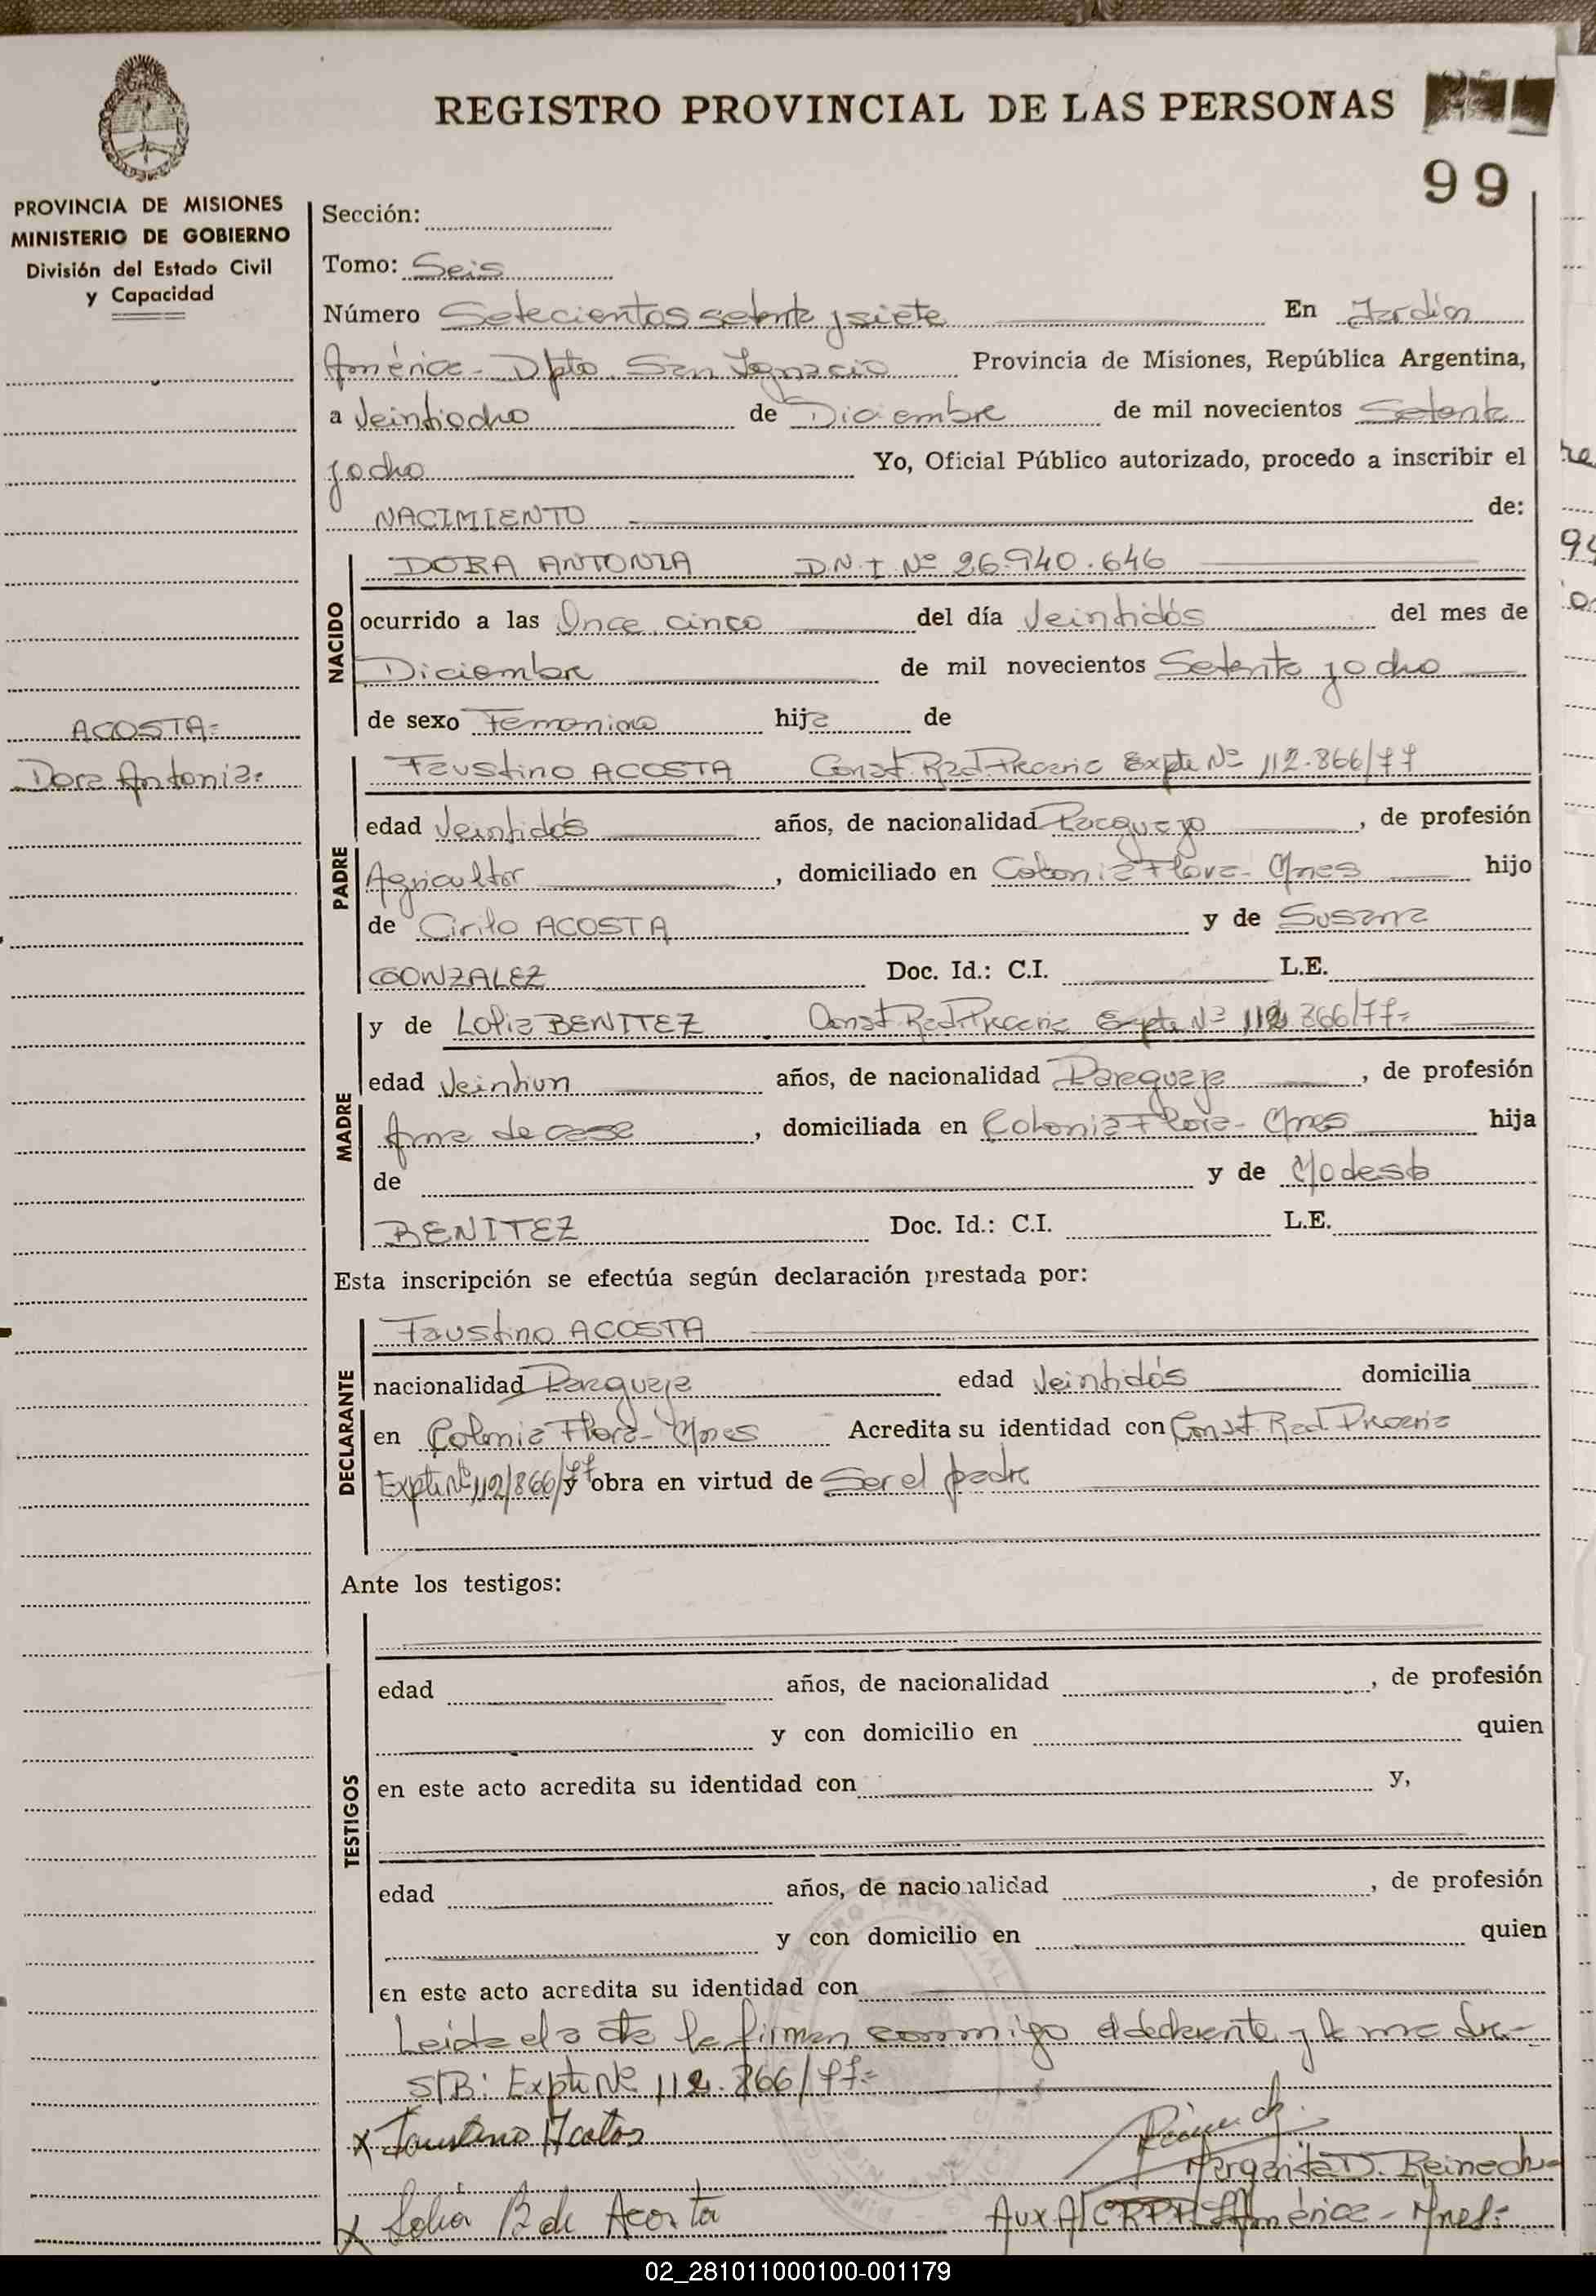 REGISTRO PROVINCIAL DE LAS PERSONAS
99
PROVINCIA DE MISIONES
MINISTERIO DE GOBIERNO
División del Estado Civil
y Capacidad
ACOSTA=
Dora Antonia=
Sección:
Tomo: Seis
Número Setecientos setenta y siete En Jardín
América - Dpto. San Ignacio Provincia de Misiones, República Argentina,
a Veintiocho de Diciembre de mil novecientos Setenta
y ocho Yo, Oficial Público autorizado, procedo a inscribir el
NACIMIENTO de:
NACIDO
DORA ANTONIA D.N.I. Nº 26.940.646
ocurrido a las Once cinco del día Veintidós del mes de
Diciembre de mil novecientos Setenta y ocho
de sexo Femenino hija de
PADRE
Faustino ACOSTA Const. Rad. Precaria Expte Nº 112.866/77
edad Veintidós años, de nacionalidad Paraguayo, de profesión
Agricultor, domiciliado en Colonia Flora - Mnes hijo
de Cirilo ACOSTA y de Susana
GONZALEZ Doc. Id.: C.I. L.E.
MADRE
y de Lolia BENITEZ Const. Rad. Precaria Expte Nº 112.866/77=
edad Veintiun años, de nacionalidad Paraguaya, de profesión
Ama de casa, domiciliada en Colonia Flora - Mnes hija
de y de Modesta
BENITEZ Doc. Id.: C.I. L.E.
Esta inscripción se efectúa según declaración prestada por:
DECLARANTE
Faustino ACOSTA
nacionalidad Paraguaya edad Veintidós domicilia
en Colonia Flora - Mnes Acredita su identidad con Const. Rad. Precaria
Expte Nº 112/866/77 y obra en virtud de Ser el padre
Ante los testigos:
TESTIGOS
edad años, de nacionalidad , de profesión
y con domicilio en quien
en este acto acredita su identidad con y,
edad años, de nacionalidad , de profesión
y con domicilio en quien
en este acto acredita su identidad con
Leida el acta la firman conmigo el declarante y la madre.-
S/B: Expte Nº 112.866/77=
x Faustino Acosta
Margarita D.
x Lolia B de Acosta
América - Mnes=
02_281011000100-001179